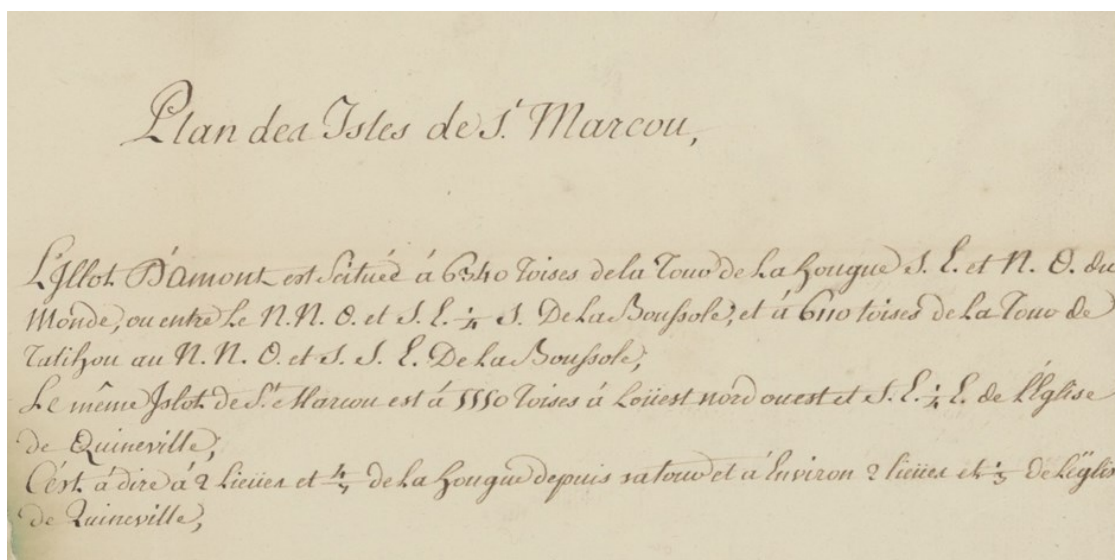 Plan des Isles de S.t Marcou,
L'Jllot D'amont est Scituée à 6340 Toises de la Tour de La hougue S. E. et N. O. du
Monde, ou entre Le N. N. O. et S. E. 1/4 S. De La Boussole, et à 6110 toises de La Tour de
Tatihou au N. N. O. et S. S. E. De La Boussole,
Le même Jslot de S.t Marcou est à 5550 Toises à Loüest nord ouest et S. E. 1/4 E. de L'Église
de Quineville,
C'ést à dire à 2 Lieües et 4/5 de La hougue depuis sa tour et à Environ 2 lieües et 1/3 de L'églis
de Quineville,